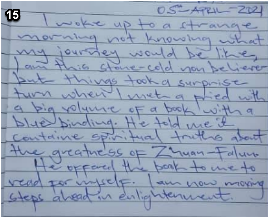 15
05-APRIL-2021
I woke up to a strange
morning not knowing what
my journey would be like,
I am this stone-cold non believer
but things took a surprise
turn when I met a fried with
a big volume of a book with a
blue binding. He told me it
contains spiritual truths about
the greatness of Zhuan-Falun.
He offered the book to me to
read for myself. I am now moving
steps ahead in enlightenment.